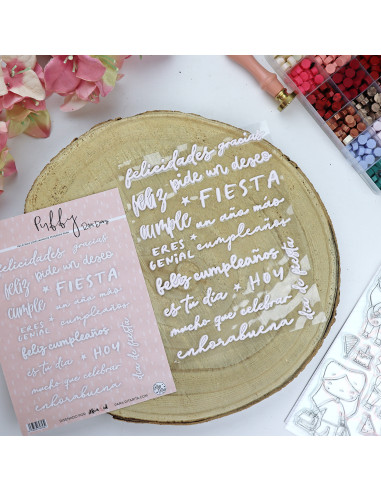 felicidades gracias
feliz pide un deseo
* FIESTA
cumple un año más
ERES * cumpleaños
GENIAL
feliz cumpleaños
es tu día * HOY
mucho que celebrar
enhorabuena
día de fiesta
Puffy
felicidades gracias
feliz pide un deseo
* FIESTA
cumple un año más
ERES * cumpleaños
GENIAL
feliz cumpleaños
es tu día * HOY
mucho que celebrar
enhorabuena
día de fiesta